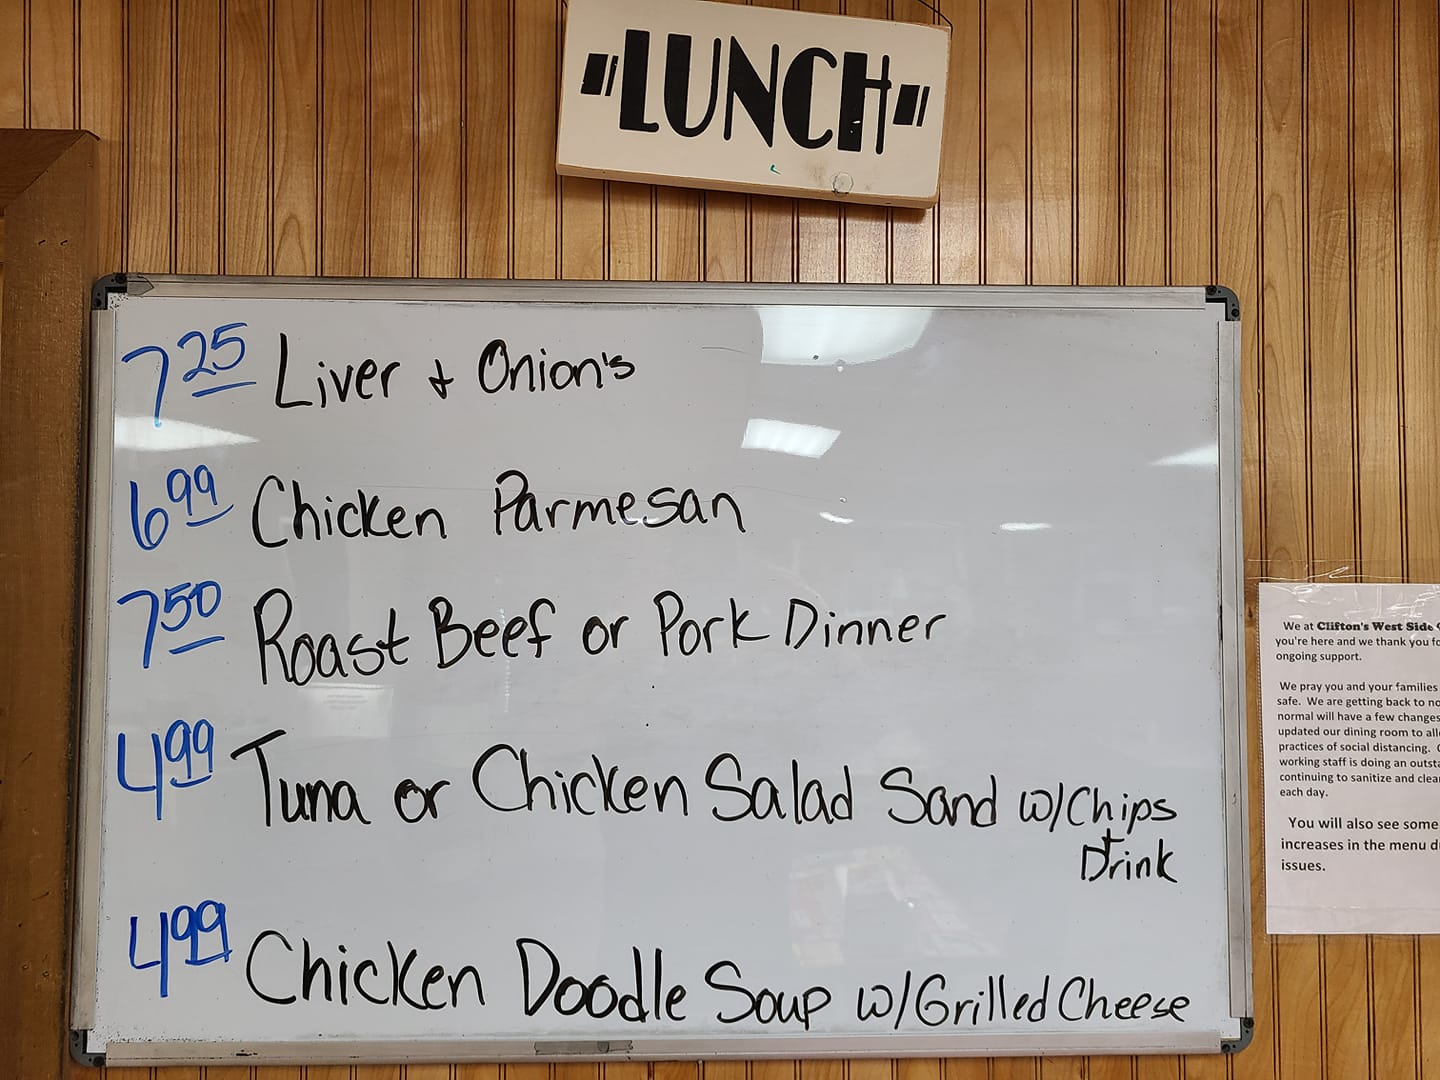 "LUNCH"
7 25 Liver + Onion's
6 99 Chicken Parmesan
7 50 Roast Beef or Pork Dinner
4 99 Tuna or Chicken Salad Sand w/Chips
+ Drink
4 99 Chicken Doodle Soup w/Grilled Cheese
We at Clifton's West Side
you're here and we thank you fo
ongoing support.
We pray you and your families
safe. We are getting back to no
normal will have a few changes
updated our dining room to all
practices of social distancing.
working staff is doing an outsta
continuing to sanitize and clea
each day.
You will also see some
increases in the menu d
issues.